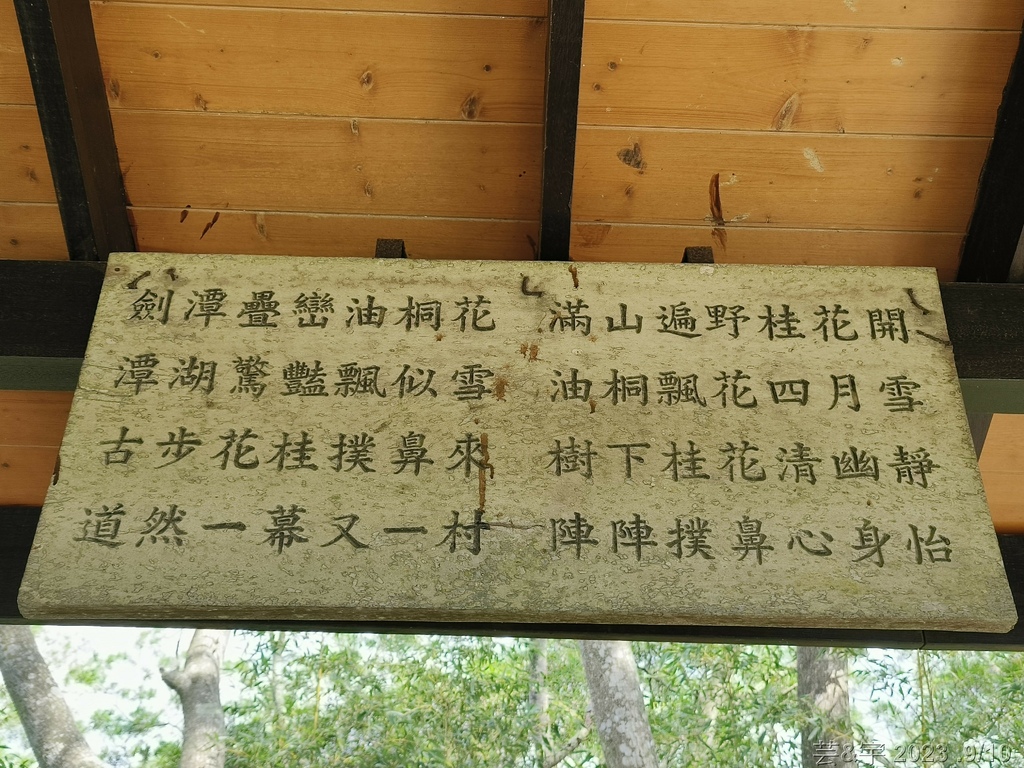 劍潭疊巒油桐花
潭湖驚豔飄似雪
古步花桂撲鼻來
道然一幕又一村
滿山遍野桂花開
油桐飄花四月雪
樹下桂花清幽靜
陣陣撲鼻心身怡
芸&宇 2023.9/10